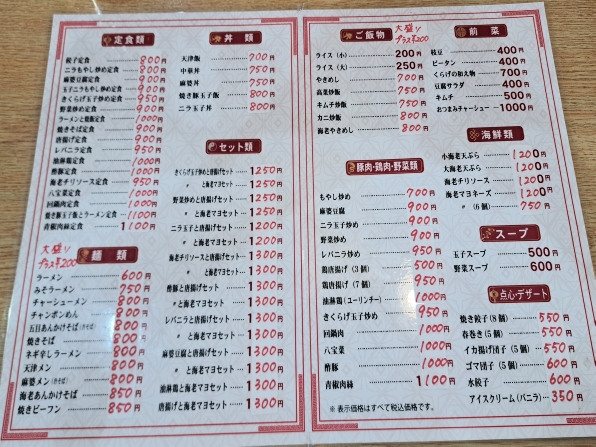 定食類
餃子定食 800円
ニラもやし炒め定食 800円
麻婆豆腐定食 800円
玉子ニラもやし炒め定食 900円
きくらげ玉子炒め定食 950円
野菜炒め定食 900円
ラーメンと焼飯定食 1000円
焼きそば定食 900円
唐揚げ定食 900円
レバニラ定食 950円
油淋鶏定食 1000円
酢豚定食 1000円
海老チリソース定食 1000円
八宝菜定食 1000円
回鍋肉定食 1000円
焼き豚玉子飯とラーメン定食 1100円
青椒肉絲定食 1100円
大盛り
プラス¥200
麺類
ラーメン 600円
みそラーメン 750円
チャーシューメン 800円
チャンポンめん 800円
五目あんかけそば 800円
焼きそば 800円
ネギ辛しラーメン 800円
天津メン 800円
麻婆メン 800円
海老あんかけそば 850円
焼きビーフン 850円
丼類
天津飯 700円
中華丼 750円
麻婆丼 750円
焼き豚玉子飯 800円
ニラ玉子丼 800円
セット類
きくらげ玉子炒めと唐揚げセット 1250円
〃 と海老マヨセット 1250円
野菜炒めと唐揚げセット 1250円
〃 と海老マヨセット 1250円
ニラ玉子と唐揚げセット 1200円
〃 と海老マヨセット 1200円
海老チリソースと唐揚げセット 1300円
〃 と海老マヨセット 1300円
酢豚と唐揚げセット 1300円
〃と海老マヨセット 1300円
レバニラと唐揚げセット 1300円
〃 と海老マヨセット 1300円
麻婆豆腐と唐揚げセット 1300円
〃 と海老マヨセット 1300円
油淋鶏と海老マヨセット 1300円
唐揚げと海老マヨセット 1300円
ご飯物
大盛り
プラス¥200
ライス（小） 200円
ライス（大） 250円
やきめし 700円
高菜炒飯 750円
キムチ炒飯 750円
カニ炒飯 800円
海老やきめし 800円
豚肉・鶏肉・野菜類
もやし炒め 700円
麻婆豆腐 900円
ニラ玉子炒め 900円
野菜炒め 900円
レバニラ炒め 950円
鶏唐揚げ（3個） 500円
鶏唐揚げ（7個） 950円
油淋鶏（ユーリンチー） 1000円
きくらげ玉子炒め 950円
回鍋肉 1000円
八宝菜 1000円
酢豚 1000円
青椒肉絲 1100円
※ 表示価格はすべて税込価格です。
前菜
枝豆 400円
ピータン 400円
くらげの和え物 700円
豆腐サラダ 400円
キムチ 500円
おつまみチャーシュー 1000円
海鮮類
小海老天ぷら 1200円
大海老天ぷら 1200円
海老チリソース 1200円
海老マヨネーズ 1200円
〃（6個） 750円
スープ
玉子スープ 500円
野菜スープ 600円
点心・デザート
焼き餃子（8個） 550円
春巻き（5個） 550円
イカ揚げ団子（5個） 550円
ゴマ団子（5個） 600円
水餃子 600円
アイスクリーム（バニラ） 350円